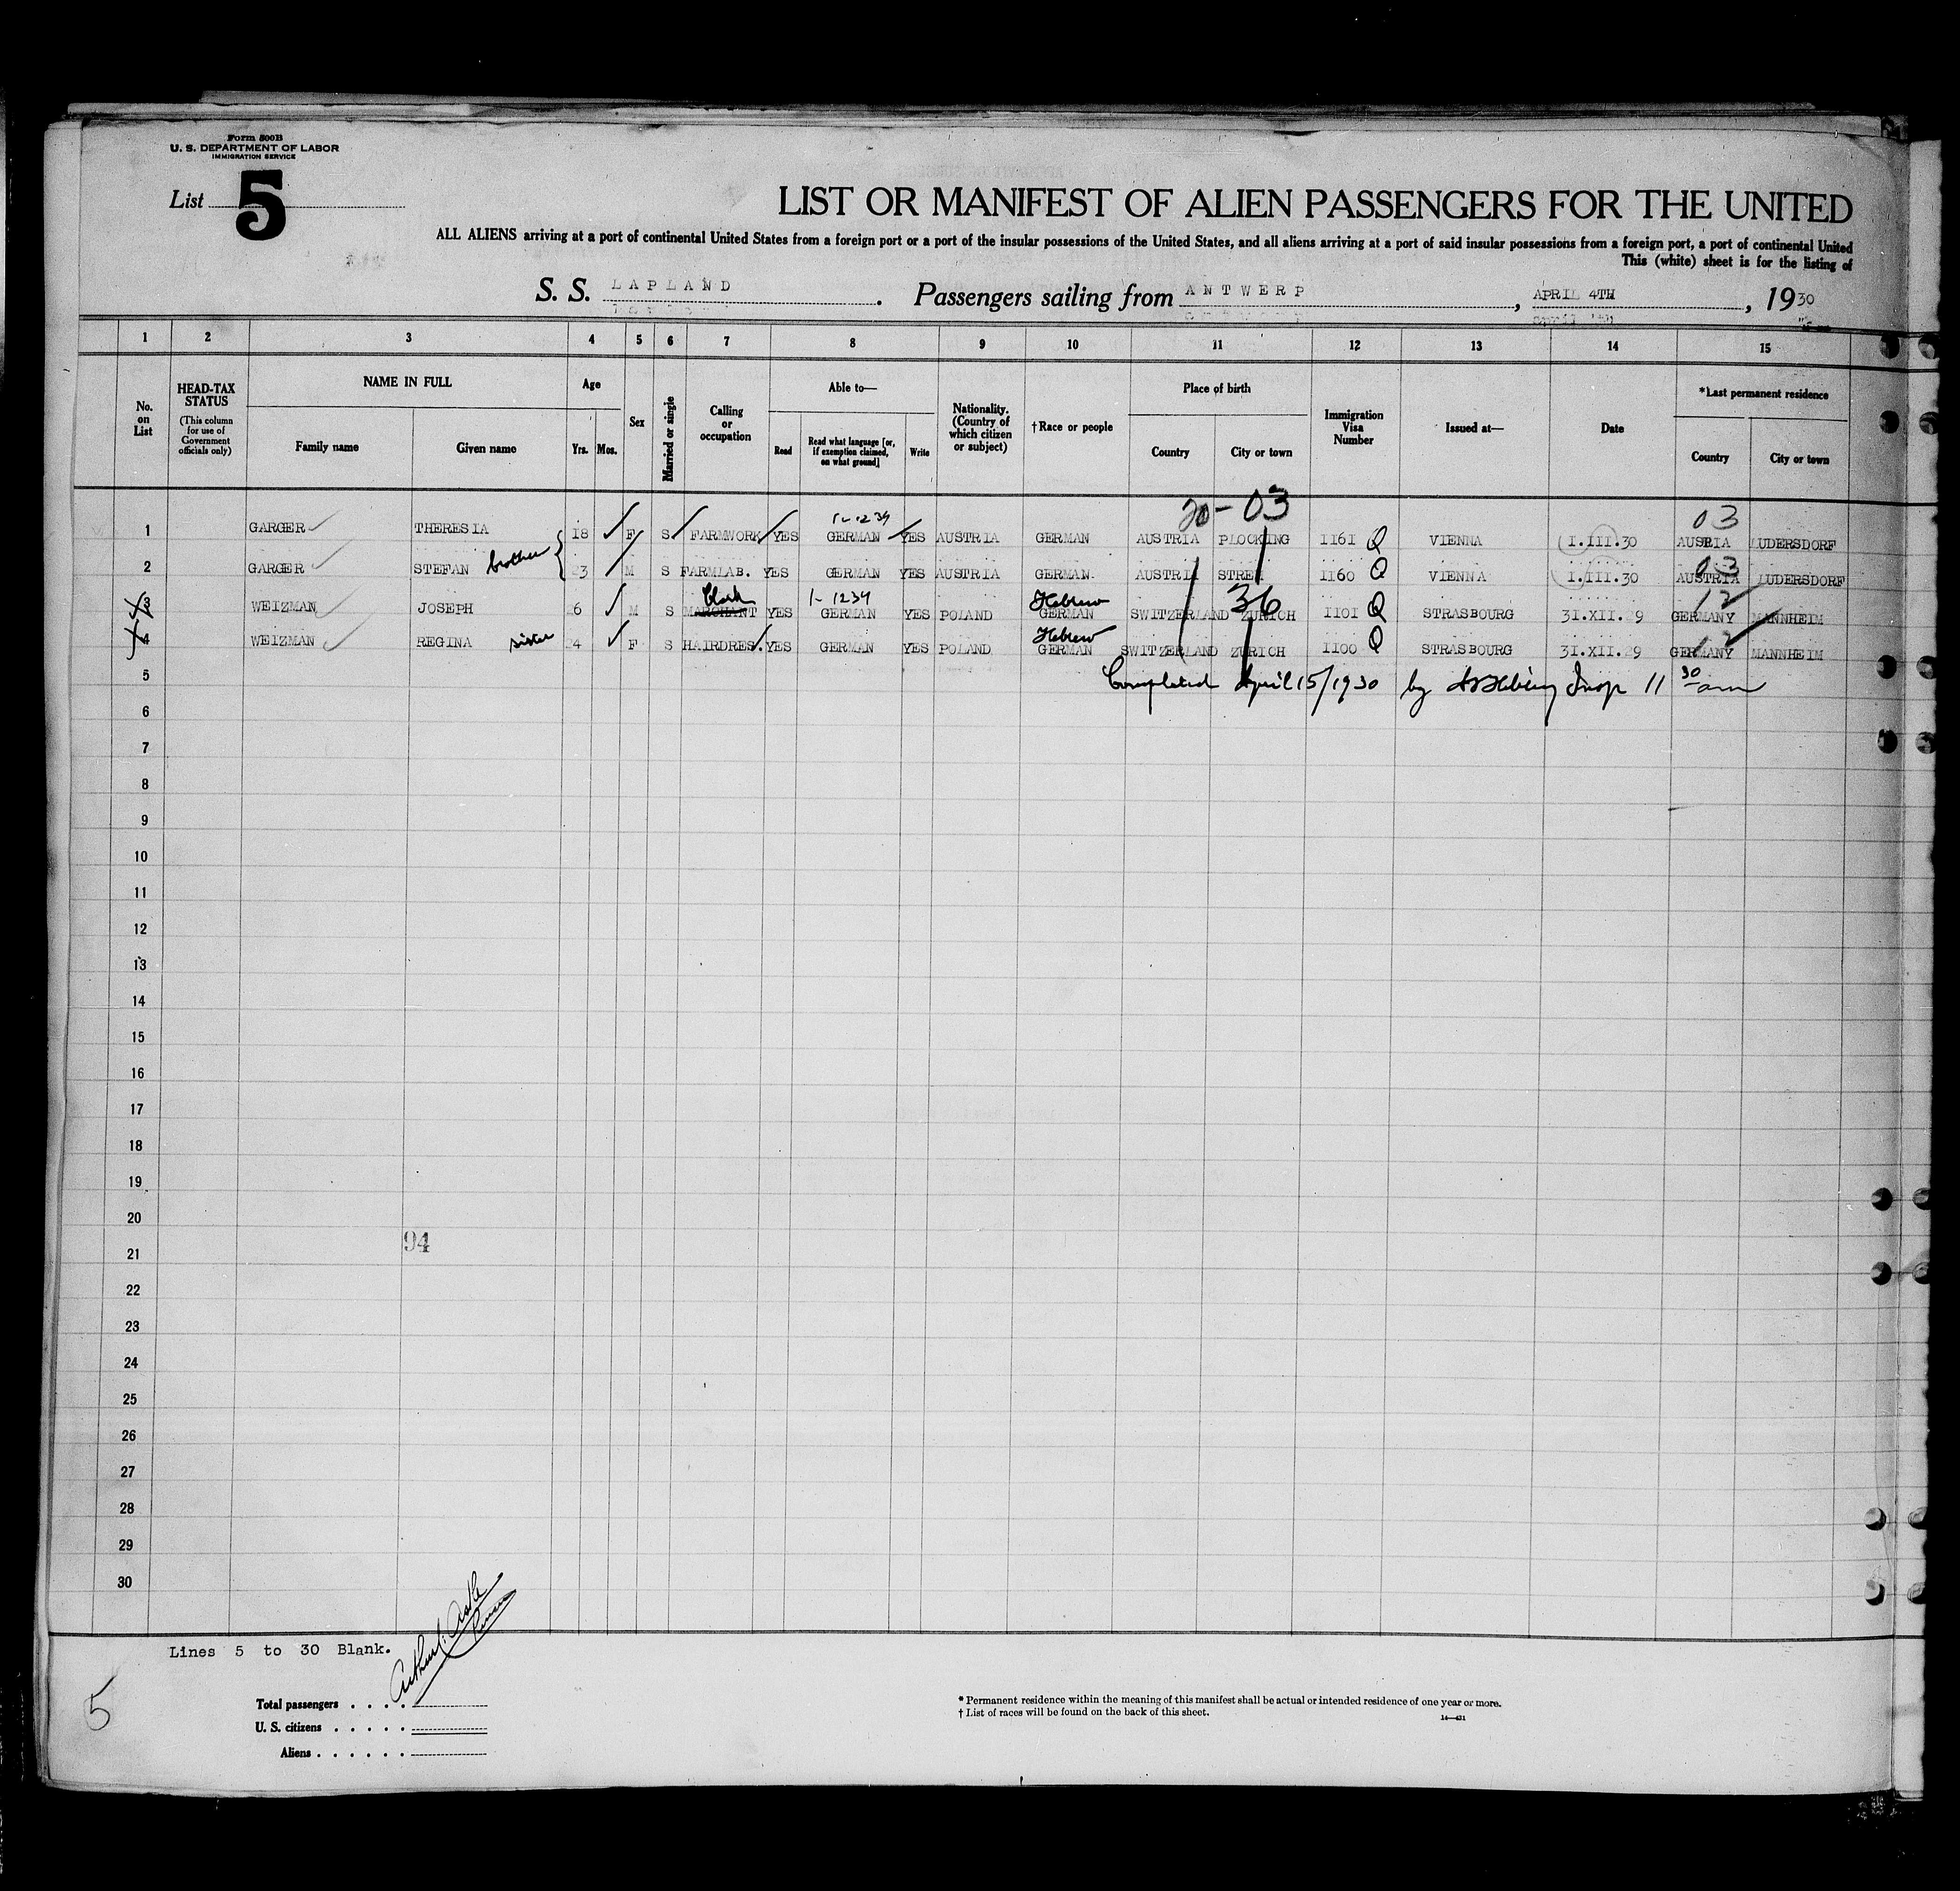 Form 500B
U. S. DEPARTMENT OF LABOR
IMMIGRATION SERVICE
List 5
LIST OR MANIFEST OF ALIEN PASSENGERS FOR THE UNITED
ALL ALIENS arriving at a port of continental United States from a foreign port or a port of the insular possessions of the United States, and all aliens arriving at a port of said insular possessions from a foreign port, a port of continental United
This (white) sheet is for the listing of
S. S. LAPLAND. Passengers sailing from ANTWERP, APRIL 4TH, 1930
1 2 3 4 5 6 7 8 9 10 11 12 13 14 15
No. on List
HEAD-TAX STATUS
(This column for use of Government officials only)
NAME IN FULL
Family name Given name
Age
Yrs. Mos.
Sex
Married or single
Calling or occupation
Able to—
Read
Read what language [or, if exemption claimed, on what ground]
Write
Nationality. (Country of which citizen or subject)
†Race or people
Place of birth
Country City or town
Immigration Visa Number
Issued at—
Date
*Last permanent residence
Country City or town
20-03
1-1234 03
1 GARGER THERESIA 18 F S FARMWORK YES GERMAN YES AUSTRIA GERMAN AUSTRIA PLOCKING 1161 Q VIENNA I.III.30 AUSRIA LUDERSDORF
03
2 GARGER STEFAN brother 23 M S FARMLAB. YES GERMAN YES AUSTRIA GERMAN. AUSTRIA STREM 1160 Q VIENNA I.III.30 AUSTRIA LUDERSDORF
Clerk 1-1234 Hebrew 36 12
3 WEIZMAN JOSEPH 6 M S MARCHANT YES GERMAN YES POLAND GERMAN SWITZERLAND ZURICH 1101 Q STRASBOURG 31.XII. 9 GERMANY MANNHEIM
Hebrew 12
4 WEIZMAN REGINA sister 4 F S HAIRDRES. YES GERMAN YES POLAND GERMAN SWITZERLAND ZURICH 1100 Q STRASBOURG 31.XII.29 GERMANY MANNHEIM
5 Completed April 15/1930 by Insp 11 30 am
6
7
8
9
10
11
12
13
14
15
16
17
18
19
20
94
21
22
23
24
25
26
27
28
29
30
Lines 5 to 30 Blank.
5
Total passengers . . . .
U. S. citizens . . . . .
Aliens . . . . . .
* Permanent residence within the meaning of this manifest shall be actual or intended residence of one year or more.
† List of races will be found on the back of this sheet.
14—431